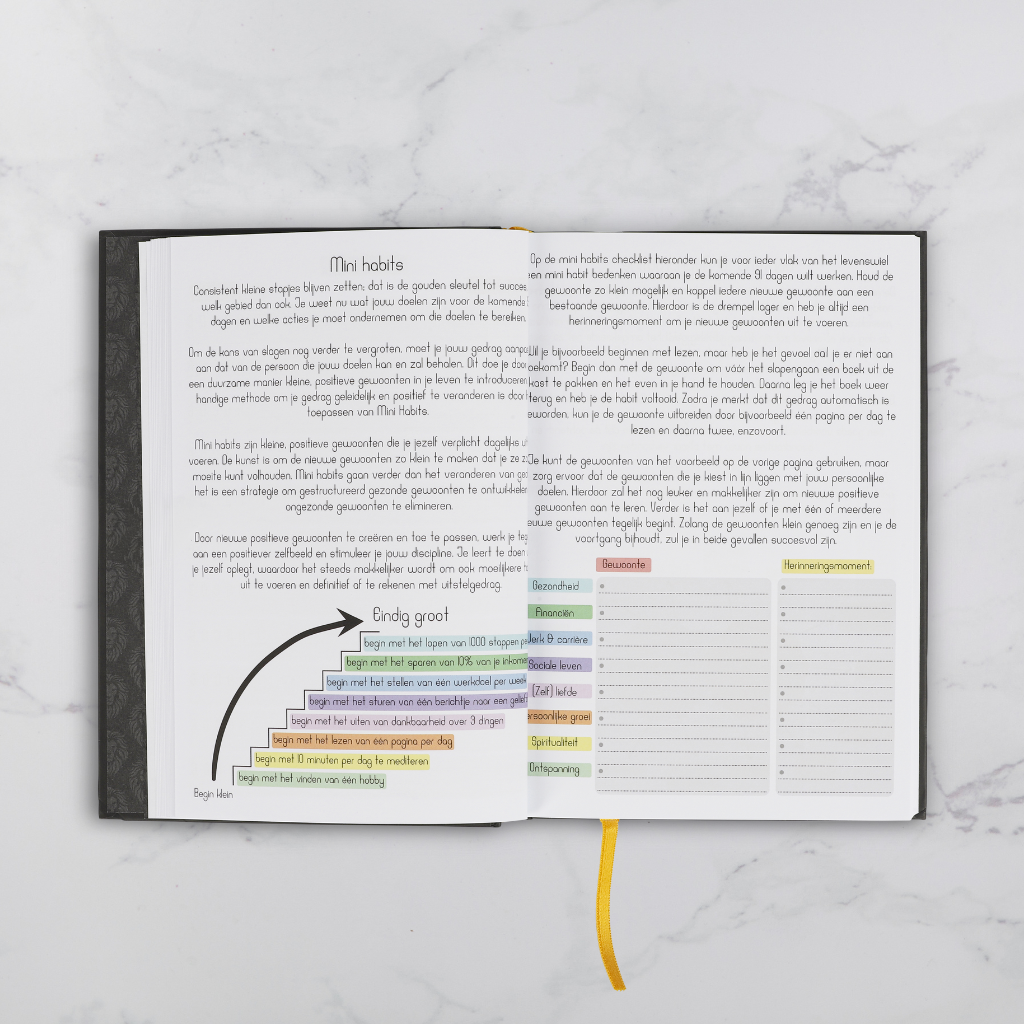 Mini habits
Consistent kleine stapjes blijven zetten; dat is de gouden sleutel tot succes
welk gebied dan ook. Je weet nu wat jouw doelen zijn voor de komende
dagen en welke acties je moet ondernemen om die doelen te bereiken.
Om de kans van slagen nog verder te vergroten, moet je jouw gedrag
aan dat van de persoon die jouw doelen kan en zal behalen. Dit doe je door
een duurzame manier kleine, positieve gewoonten in je leven te introduceren
handige methode om je gedrag geleidelijk en positief te veranderen is door
toepassen van Mini Habits.
Mini habits zijn kleine, positieve gewoonten die je jezelf verplicht dagelijks
voeren. De kunst is om de nieuwe gewoonten zo klein te maken dat je ze
moeite kunt volhouden. Mini habits gaan verder dan het veranderen van
het is een strategie om gestructureerd gezonde gewoonten te ontwikkelen
ongezonde gewoonten te elimineren.
Door nieuwe positieve gewoonten te creëren en toe te passen, werk je
aan een positiever zelfbeeld en stimuleer je jouw discipline. Je leert te doen
je jezelf oplegt, waardoor het steeds makkelijker wordt om ook moeilijkere
uit te voeren en definitief af te rekenen met uitstelgedrag.
Eindig groot
begin met het lopen van 1000 stappen
begin met het sparen van 10% van je
begin met het stellen van één werkdoel per week
begin met het sturen van één berichtje naar een
begin met het uiten van dankbaarheid over 3 dingen
begin met het lezen van één pagina per dag
begin met 10 minuten per dag te mediteren
begin met het vinden van één hobby
Begin klein
Op de mini habits checklist hieronder kun je voor ieder vlak van het levenswiel
een mini habit bedenken waaraan je de komende 91 dagen wilt werken. Houd de
gewoonte zo klein mogelijk en koppel iedere nieuwe gewoonte aan een
bestaande gewoonte. Hierdoor is de drempel lager en heb je altijd een
herinneringsmoment om je nieuwe gewoonten uit te voeren.
Wil je bijvoorbeeld beginnen met lezen, maar heb je het gevoel dat je er niet aan
toekomt? Begin dan met de gewoonte om vóór het slapengaan een boek uit de
kast te pakken en het even in je hand te houden. Daarna leg je het boek weer
terug en heb je de habit voltooid. Zodra je merkt dat dit gedrag automatisch is
geworden, kun je de gewoonte uitbreiden door bijvoorbeeld één pagina per dag te
lezen en daarna twee, enzovoort.
Je kunt de gewoonten van het voorbeeld op de vorige pagina gebruiken, maar
zorg ervoor dat de gewoonten die je kiest in lijn liggen met jouw persoonlijke
doelen. Hierdoor zal het nog leuker en makkelijker zijn om nieuwe positieve
gewoonten aan te leren. Verder is het aan jezelf of je met één of meerdere
nieuwe gewoonten tegelijk begint. Zolang de gewoonten klein genoeg zijn en je de
voortgang bijhoudt, zul je in beide gevallen succesvol zijn.
Gewoonte Herinneringsmoment
Gezondheid
Financiën
Werk & carrière
Sociale leven
(Zelf) liefde
Persoonlijke groei
Spiritualiteit
Ontspanning